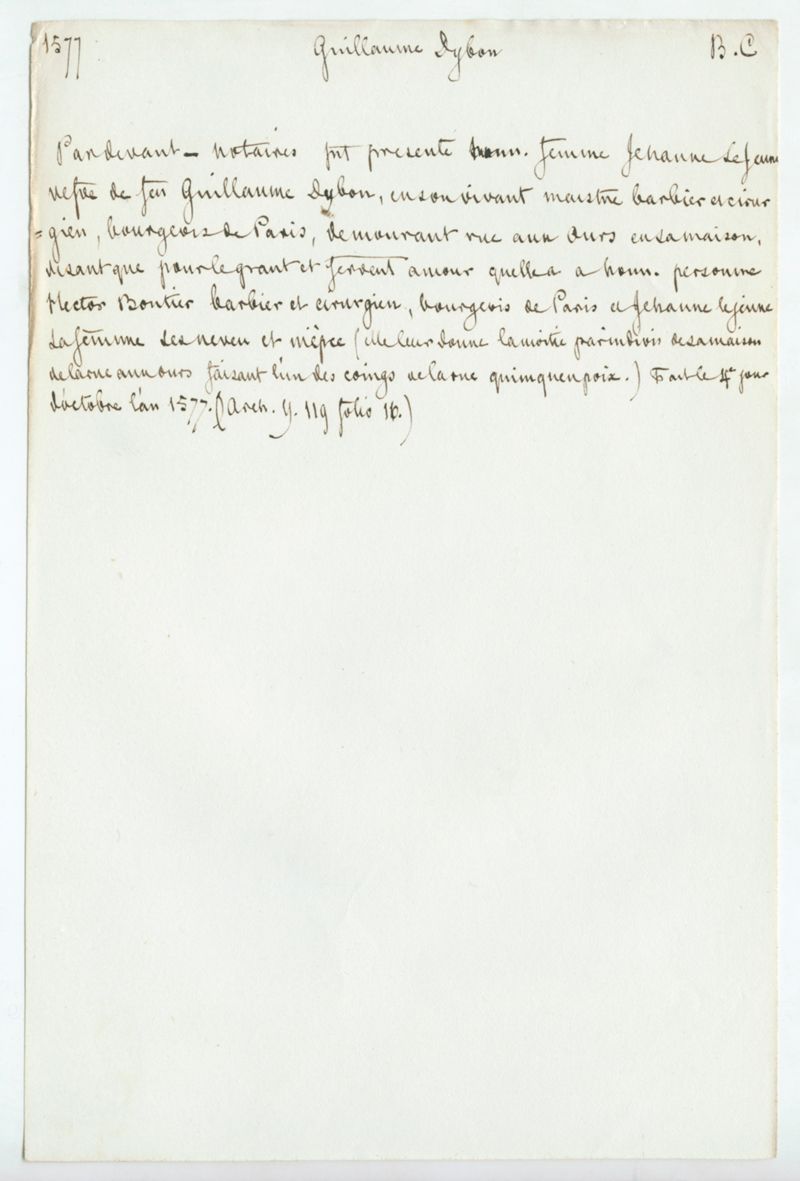 1577 Guillaume Dybon B.C
Pardevant - notaires fut presente honn. femme Jehanne Le Jeune
vefve de feu Guillaume Dybon, en son vivant maistre barbier et cirur
=gien, bourgeois de Paris, demourant rue aux Ours en sa maison,
disant que pour le grant et fervent amour quelle a a honn. personne
Hector Bontier barbier et cirurgien, bourgeois de Paris et Jehanne le jeune
sa femme ses neveu et niepce (elle leur donne la moitié par indivis de sa maison
de la rue aux ours faisant l'un des coings de la rue quinquenpoix.) Fait le 4e jour
d'octobre l'an 1577. (Arch. Y. 119 folio 16.)